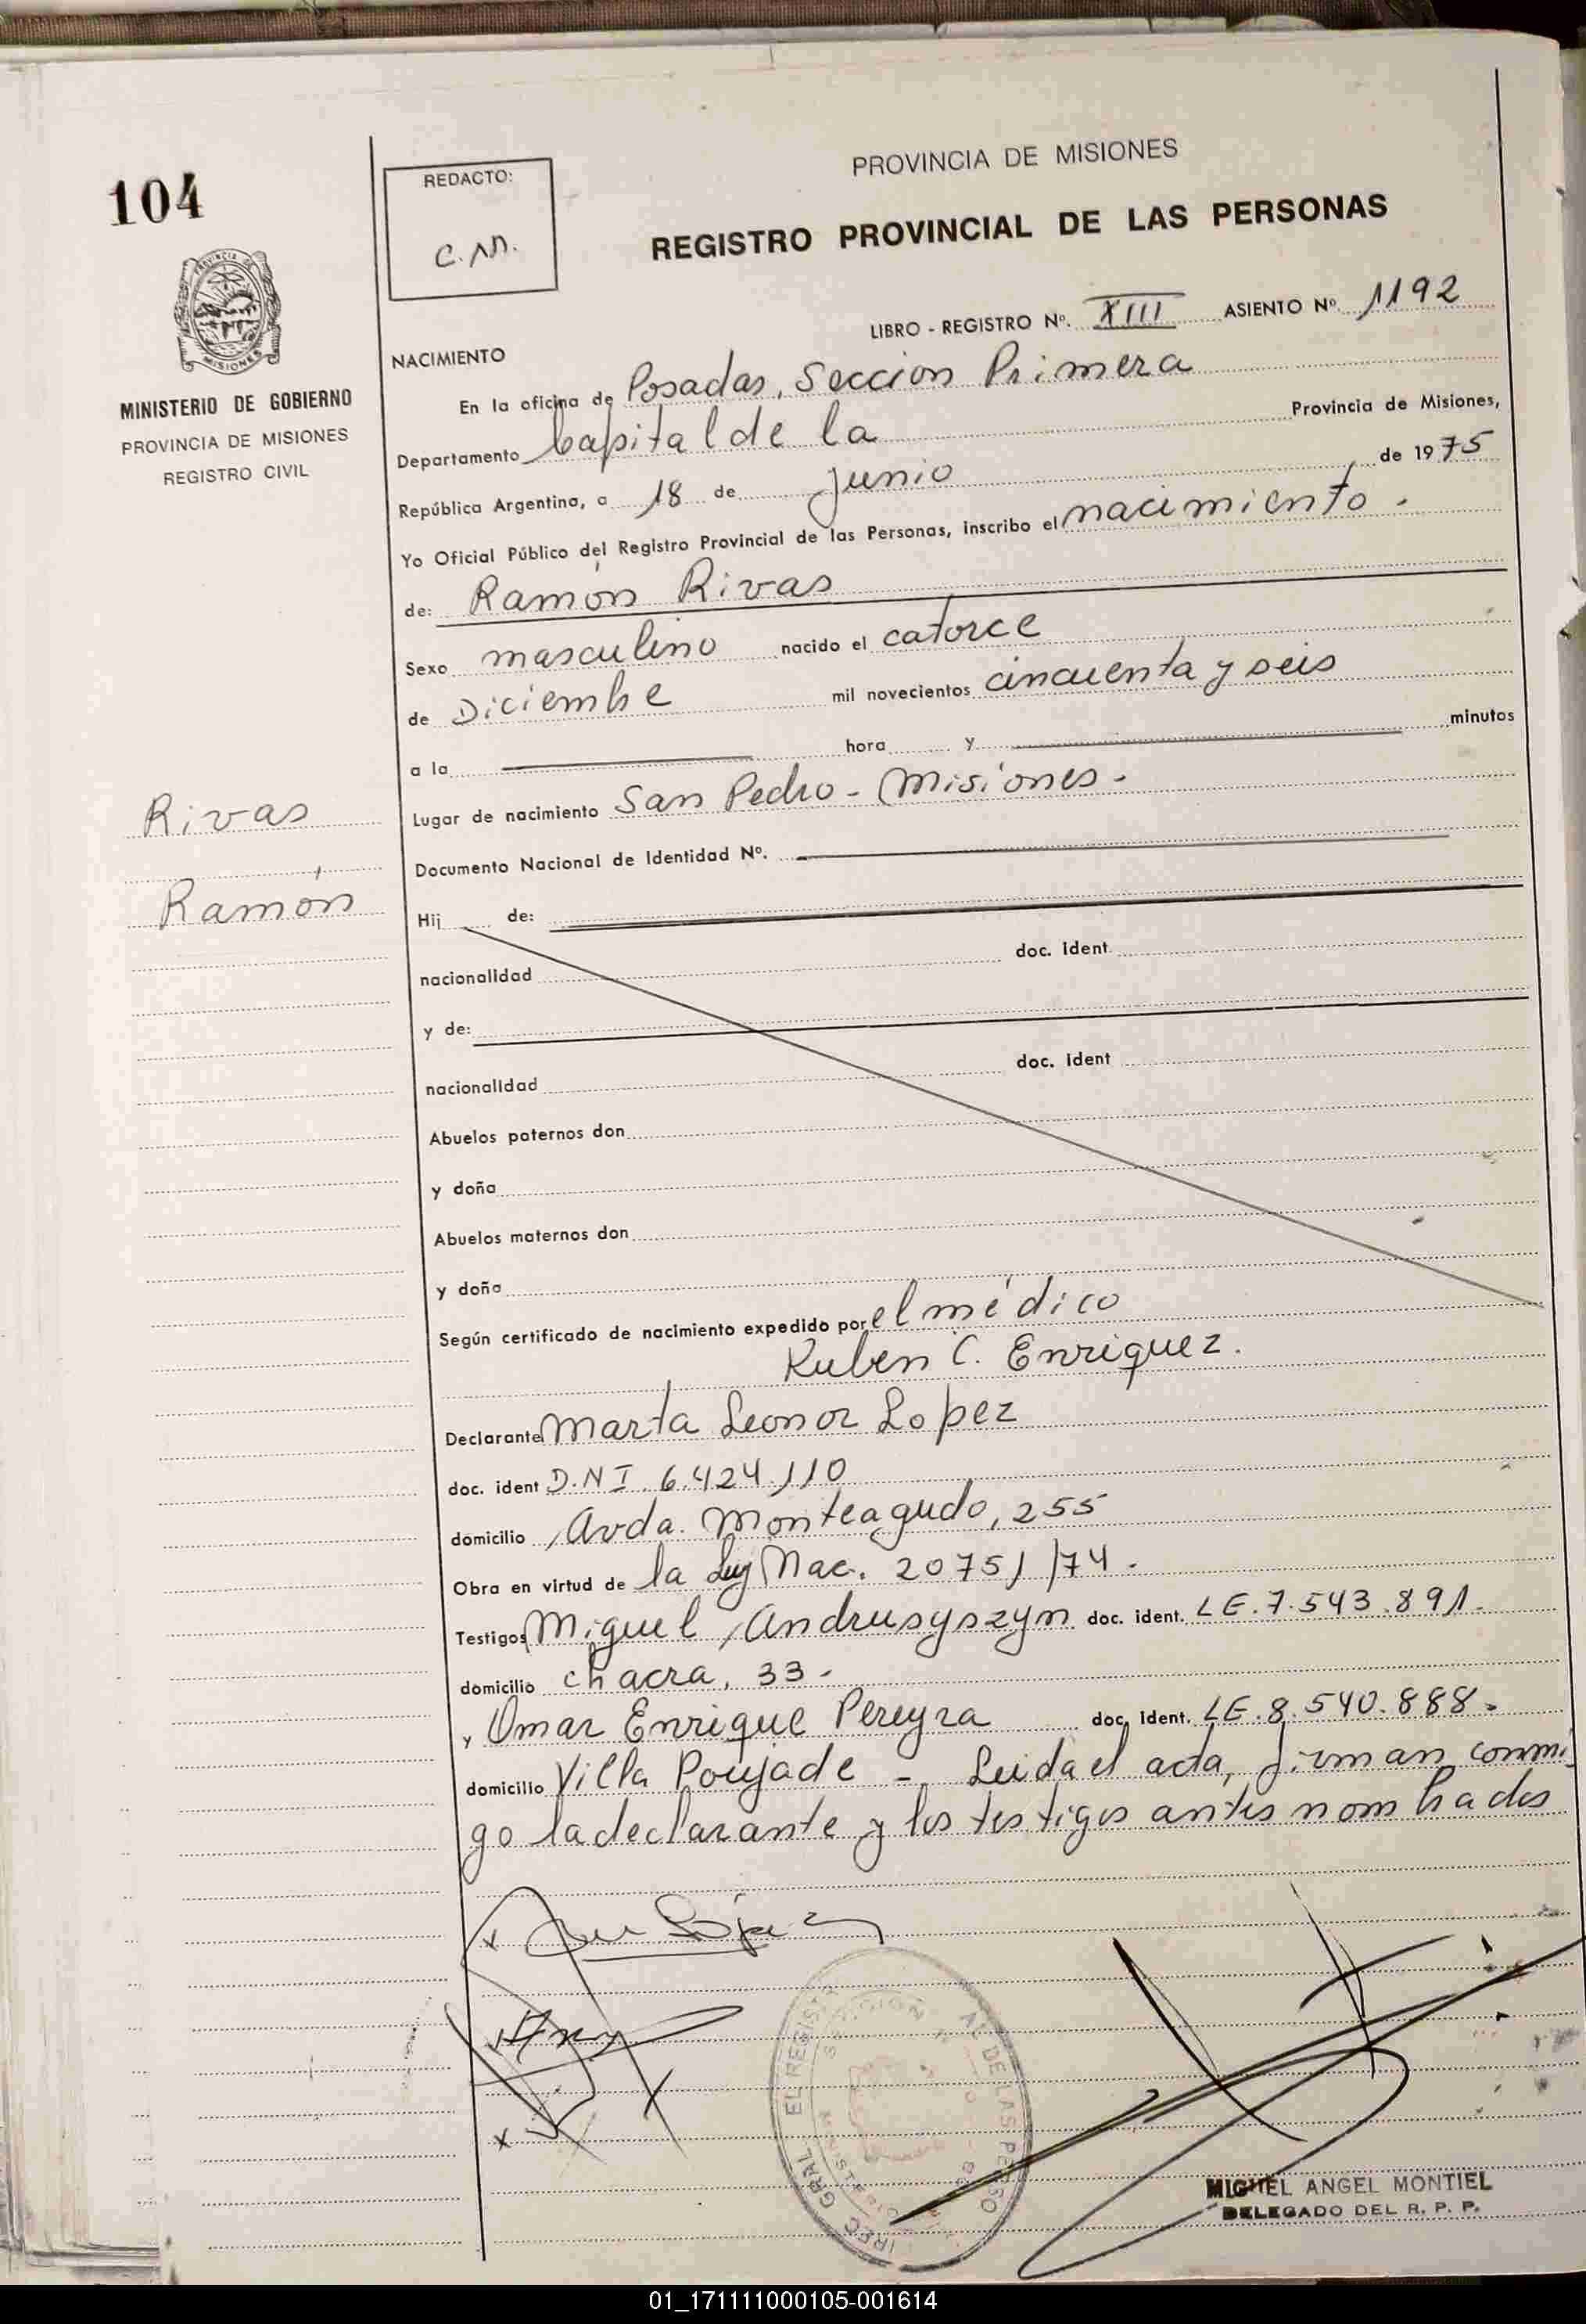 104
PROVINCIA DE MISIONES
MINISTERIO DE GOBIERNO
PROVINCIA DE MISIONES
REGISTRO CIVIL
Rivas
Ramón
REDACTO:
C.M.
PROVINCIA DE MISIONES
REGISTRO PROVINCIAL DE LAS PERSONAS
LIBRO - REGISTRO Nº. XIII ASIENTO Nº. 1192
NACIMIENTO
En la oficina de Posadas, Seccion Primera
Departamento Capital de la Provincia de Misiones,
República Argentina, a 18 de junio de 1975
Yo Oficial Público del Registro Provincial de las Personas, inscribo el nacimiento.
de: Ramón Rivas
Sexo masculino nacido el catorce
de Diciembre mil novecientos cincuenta y seis
a la hora y minutos
Lugar de nacimiento San Pedro - Misiones -
Documento Nacional de Identidad Nº.
Hij de:
nacionalidad doc. ident
y de:
nacionalidad doc. ident
Abuelos paternos don
y doña
Abuelos maternos don
y doña
Según certificado de nacimiento expedido por el médico
Ruben C. Enriquez.
Declarante Marta Leonor Lopez
doc. ident D.N I. 6.424.110
domicilio Avda. Monteagudo, 255
Obra en virtud de la Ley Nac. 20751/74 -
Testigos Miguel Andrusyszyn doc. ident. LE. 7.543.891.
domicilio chacra, 33 -
y Omar Enrique Pereyra doc. ident. LE. 8.540.888 -
domicilio Villa Poujade - Leida el acta, firman conmi
go la declarante y los testigos antes nombrados
x Lópiz
x
x
MIGUEL ANGEL MONTIEL
DELEGADO DEL R. P. P.
01_171111000105-001614